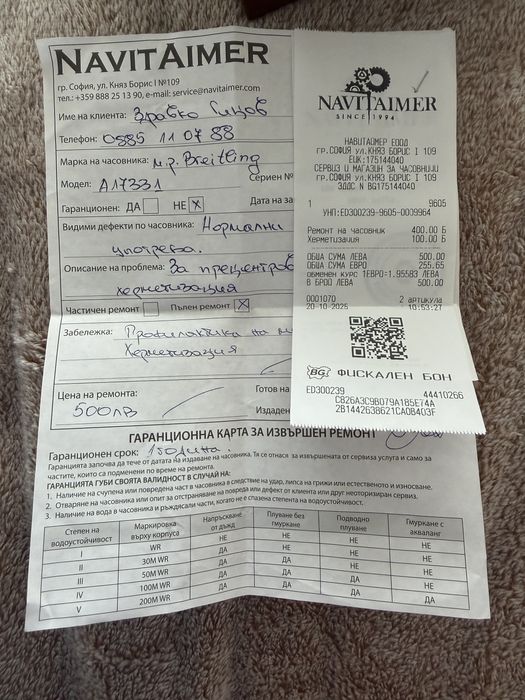 NAVITAIMER
гр. София, ул. Княз Борис I №109
тел.: +359 888 25 13 90, e-mail: service@navitaimer.com
Име на клиента: Здравко
Телефон: 0885 11 07 88
Марка на часовника: м.р. Breitling
Модел: A17331 Сериен №
Гаранционен: ДА НЕ X Дата на за
Видими дефекти по часовника: Нормални
употреба.
Описание на проблема: За
херметизация
Частичен ремонт Пълен ремонт X
Забележка: Профилактика на
Херметизация
Цена на ремонта: Готов на
500лв Издаден
ГАРАНЦИОННА КАРТА ЗА ИЗВЪРШЕН РЕМОНТ
Гаранционен срок: 1 година.
Гаранцията започва да тече от датата на издаване на часовника. Тя се отнася за извършената от сервиза услуга и само за
частите, които са подменени по време на ремонта.
ГАРАНЦИЯТА ГУБИ СВОЯТА ВАЛИДНОСТ В СЛУЧАЙ НА:
1. Наличие на счупена или повредена част в часовника в следствие на удар, липса на грижи или естественото и износване.
2. Отваряне на часовника или опит за отстраняване на повреда или дефект от клиента или друг неоторизиран сервиз.
3. Наличие на вода в часовника и ръждясали части, когато не е спазена степента на водоустойчивост.
Степен на водоустойчивост Маркировка върху корпуса Напръскване от дъжд Плуване без гмуркане Подводно плуване Гмуркане с акваланг
I WR НЕ НЕ НЕ НЕ
II 30M WR ДА НЕ НЕ НЕ
III 50M WR ДА ДА НЕ НЕ
IV 100M WR ДА ДА ДА НЕ
V 200M WR ДА ДА ДА ДА
NAVITAIMER
SINCE 1994
НАВИТАЙМЕР ЕООД
ГР.СОФИЯ УЛ.КНЯЗ БОРИС I 109
ЕИК:175144040
СЕРВИЗ И МАГАЗИН ЗА ЧАСОВНИЦИ
ГР.СОФИЯ УЛ.КНЯЗ БОРИС I 109
ЗДДС N BG175144040
1 9605
УНП:ED300239-9605-0009964
Ремонт на часовник 400.00 Б
Херметизация 100.00 Б
ОБЩА СУМА ЛЕВА 500.00
ОБЩА СУМА ЕВРО 255.65
обменен курс 1ЕВРО=1.95583 ЛЕВА
В БРОЙ ЛЕВА 500.00
0001070 2 артикула
20-10-2025 10:53:27
BG ФИСКАЛЕН БОН
ED300239 44410266
C826A3C9B079A185E74A
2B1442638621CA0B403F